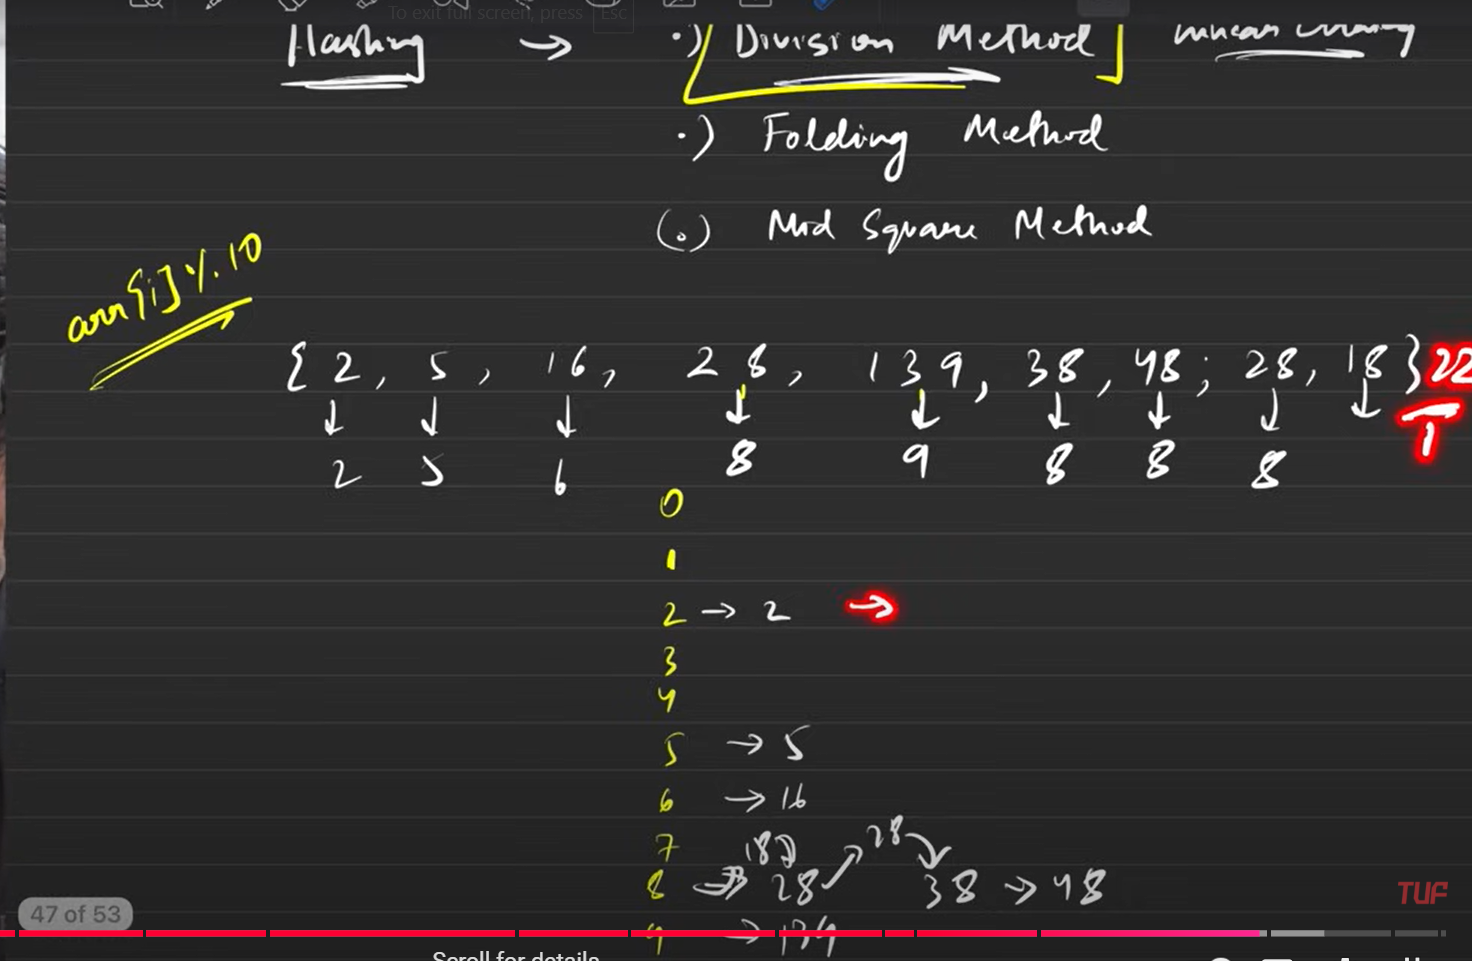 To exit full screen, press Esc
Hashing → ·) Division Method
·) Folding Method
(.) Mid Square Method
arr[i] % 10
{ 2, 5, 16, 28, 139, 38, 48, 28, 18 } 22
↓ ↓ ↓ ↓ ↓ ↓ ↓ ↓ ↓
2 5 6 8 9 8 8 8
0
1
2 → 2 →
3
4
5 → 5
6 → 16
7
18 28
8 → 28 38 → 48
9 → 139
47 of 53
TUF
Scroll for details